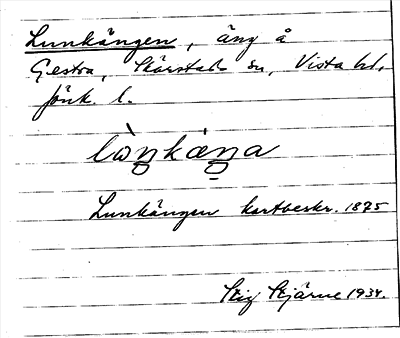 Lunkängen, äng å
Gestra, Skärstads sn, Vista hd,
Jönk. l.
Lunkängen kartbeskr. 1875
Stig Stjärne 1934.